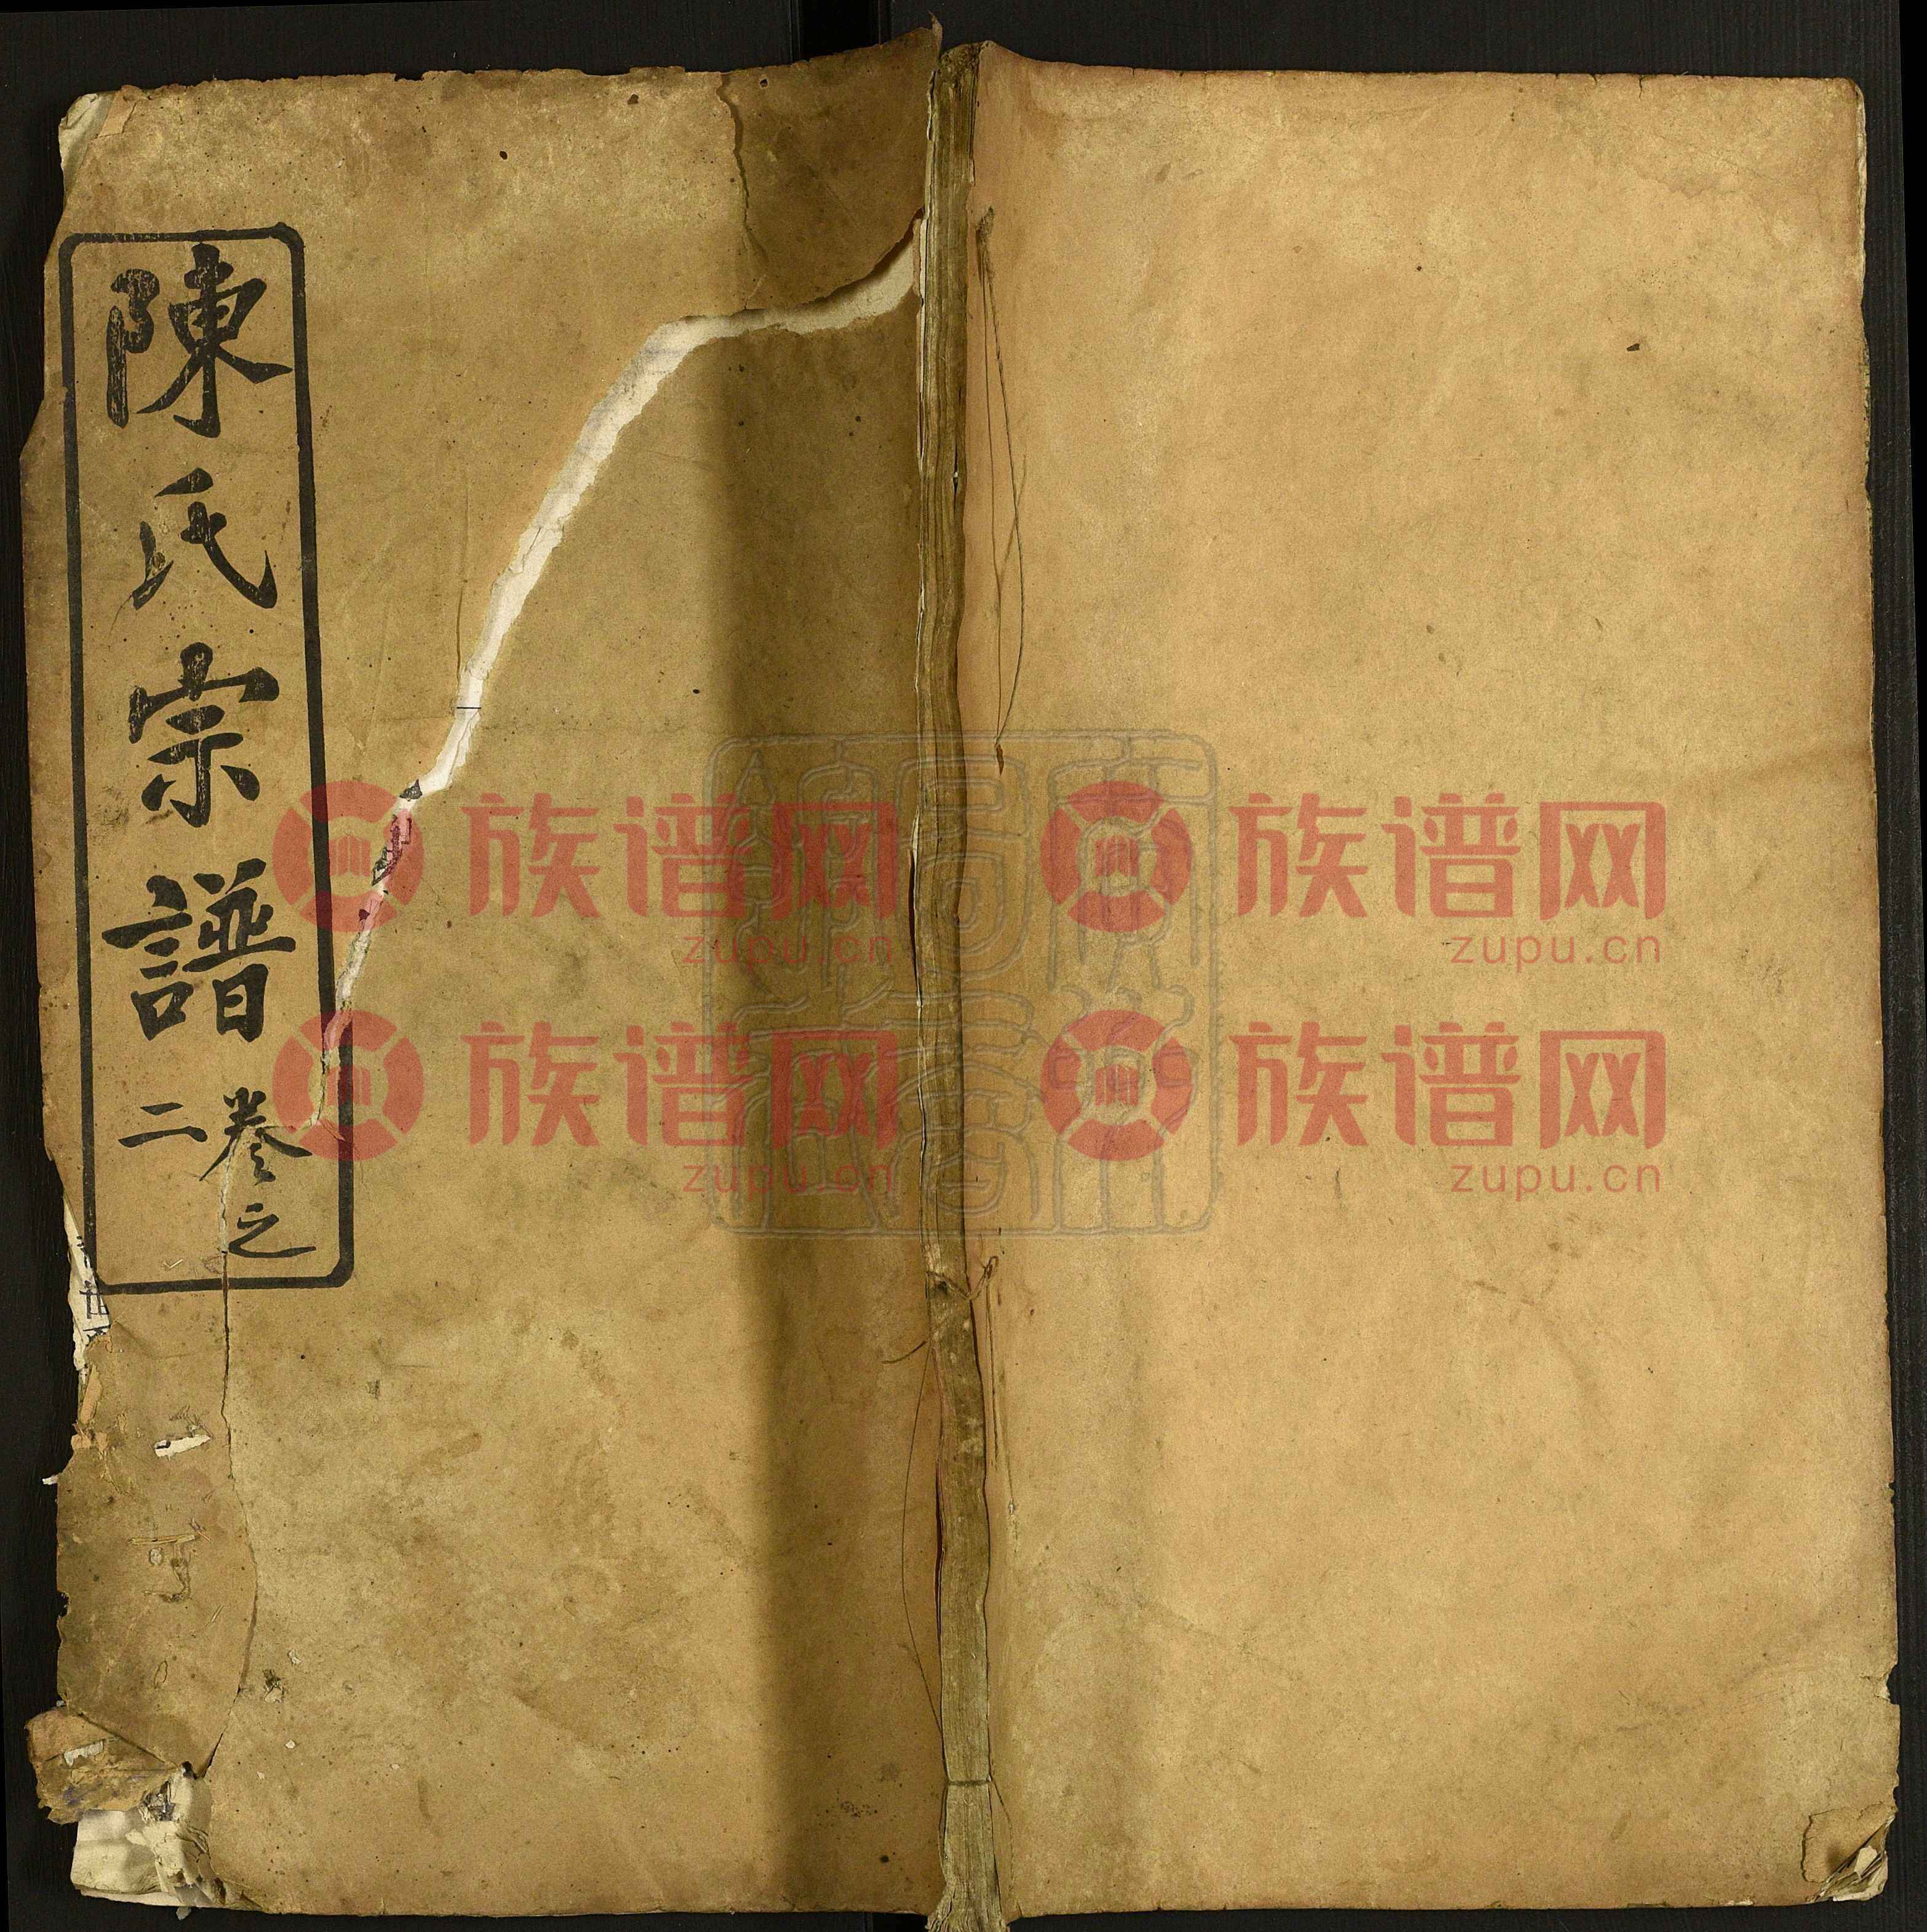 陳氏宗譜
卷之
二
族谱网 族谱网
zupu.cn zupu.cn
族谱网 族谱网
zupu.cn zupu.cn